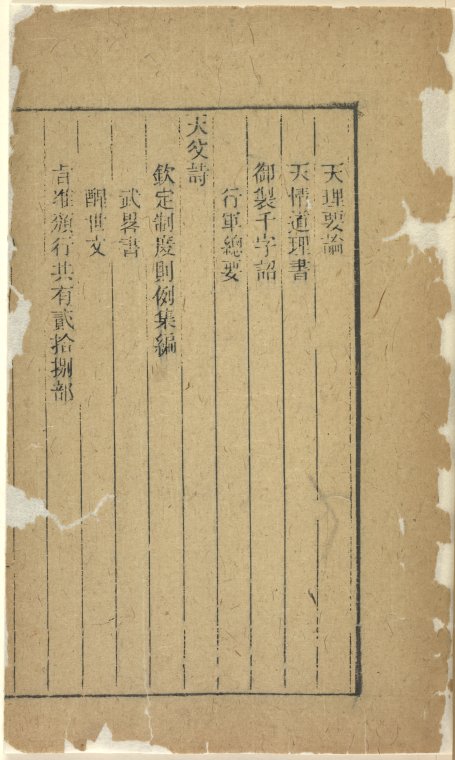 天理要論
天情道理書
御製千字詔
行軍總要
天父詩
欽定制度則例集編
武畧書
醒世文
旨准頒行共有貳拾捌部